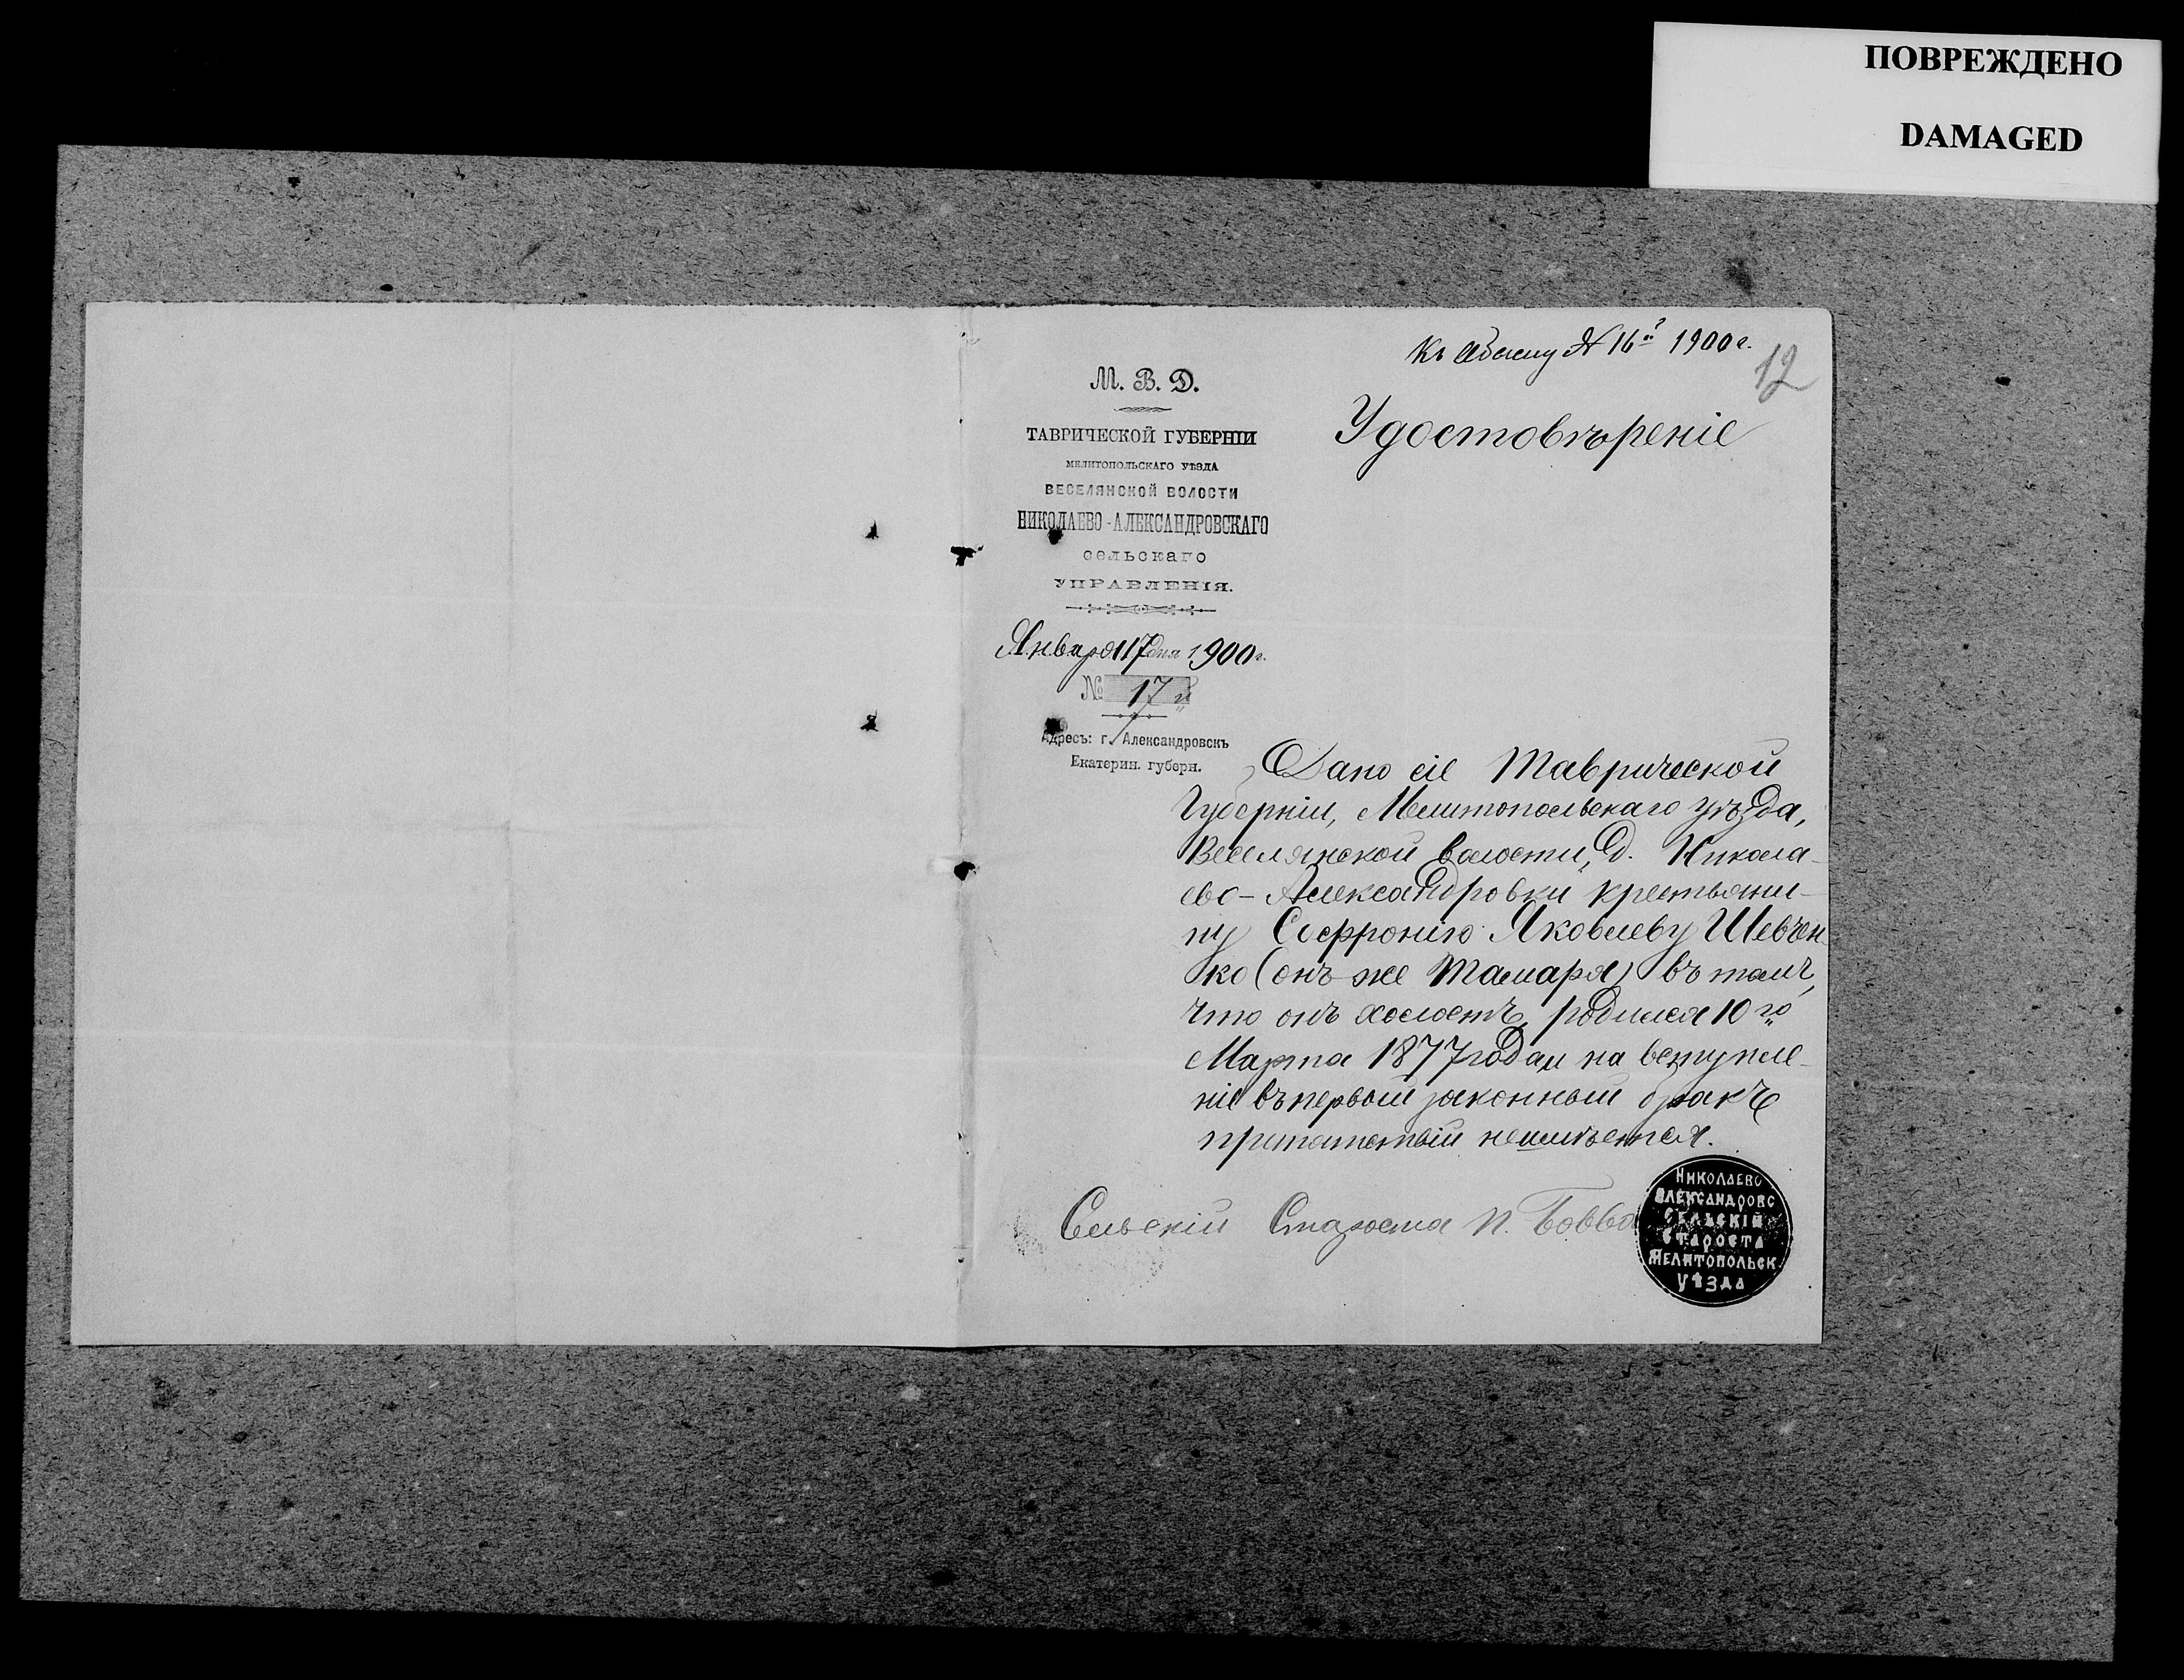 ПОВРЕЖДЕНО
DAMAGED
Къ Обыску № 16й 1900 г.
12
М. В. Д.
ТАВРИЧЕСКОЙ ГУБЕРНІИ
МЕЛИТОПОЛЬСКАГО УѢЗДА
ВЕСЕЛЯНСКОЙ ВОЛОСТИ
НИКОЛАЕВО-АЛЕКСАНДРОВСКАГО
сельскаго
УПРАВЛЕНІЯ.
Января 17 дня 1900 г.
№ 17й
Адресъ: г. Александровскъ
Екатерин. губерн.
Удостовѣреніе
Дано сіе Таврической
Губерніи, Мелитопольскаго уѣзда,
Веселянской волости, д. Никола-
ево-Александровки крестьяни-
ну Софронію Яковлеву Шевчен-
ко (онъ же Тамара) въ томъ,
что онъ холостъ, родился 10го
Марта 1877 года и на вступле-
ніе въ первый законный бракъ
препятствій неимѣется.
Сельскій Староста П. Бовва
НИКОЛАЕВО
АЛЕКСАНДРОВС
СЕЛЬСКІЙ
СТАРОСТА
МЕЛИТОПОЛЬСК.
УѢЗДА